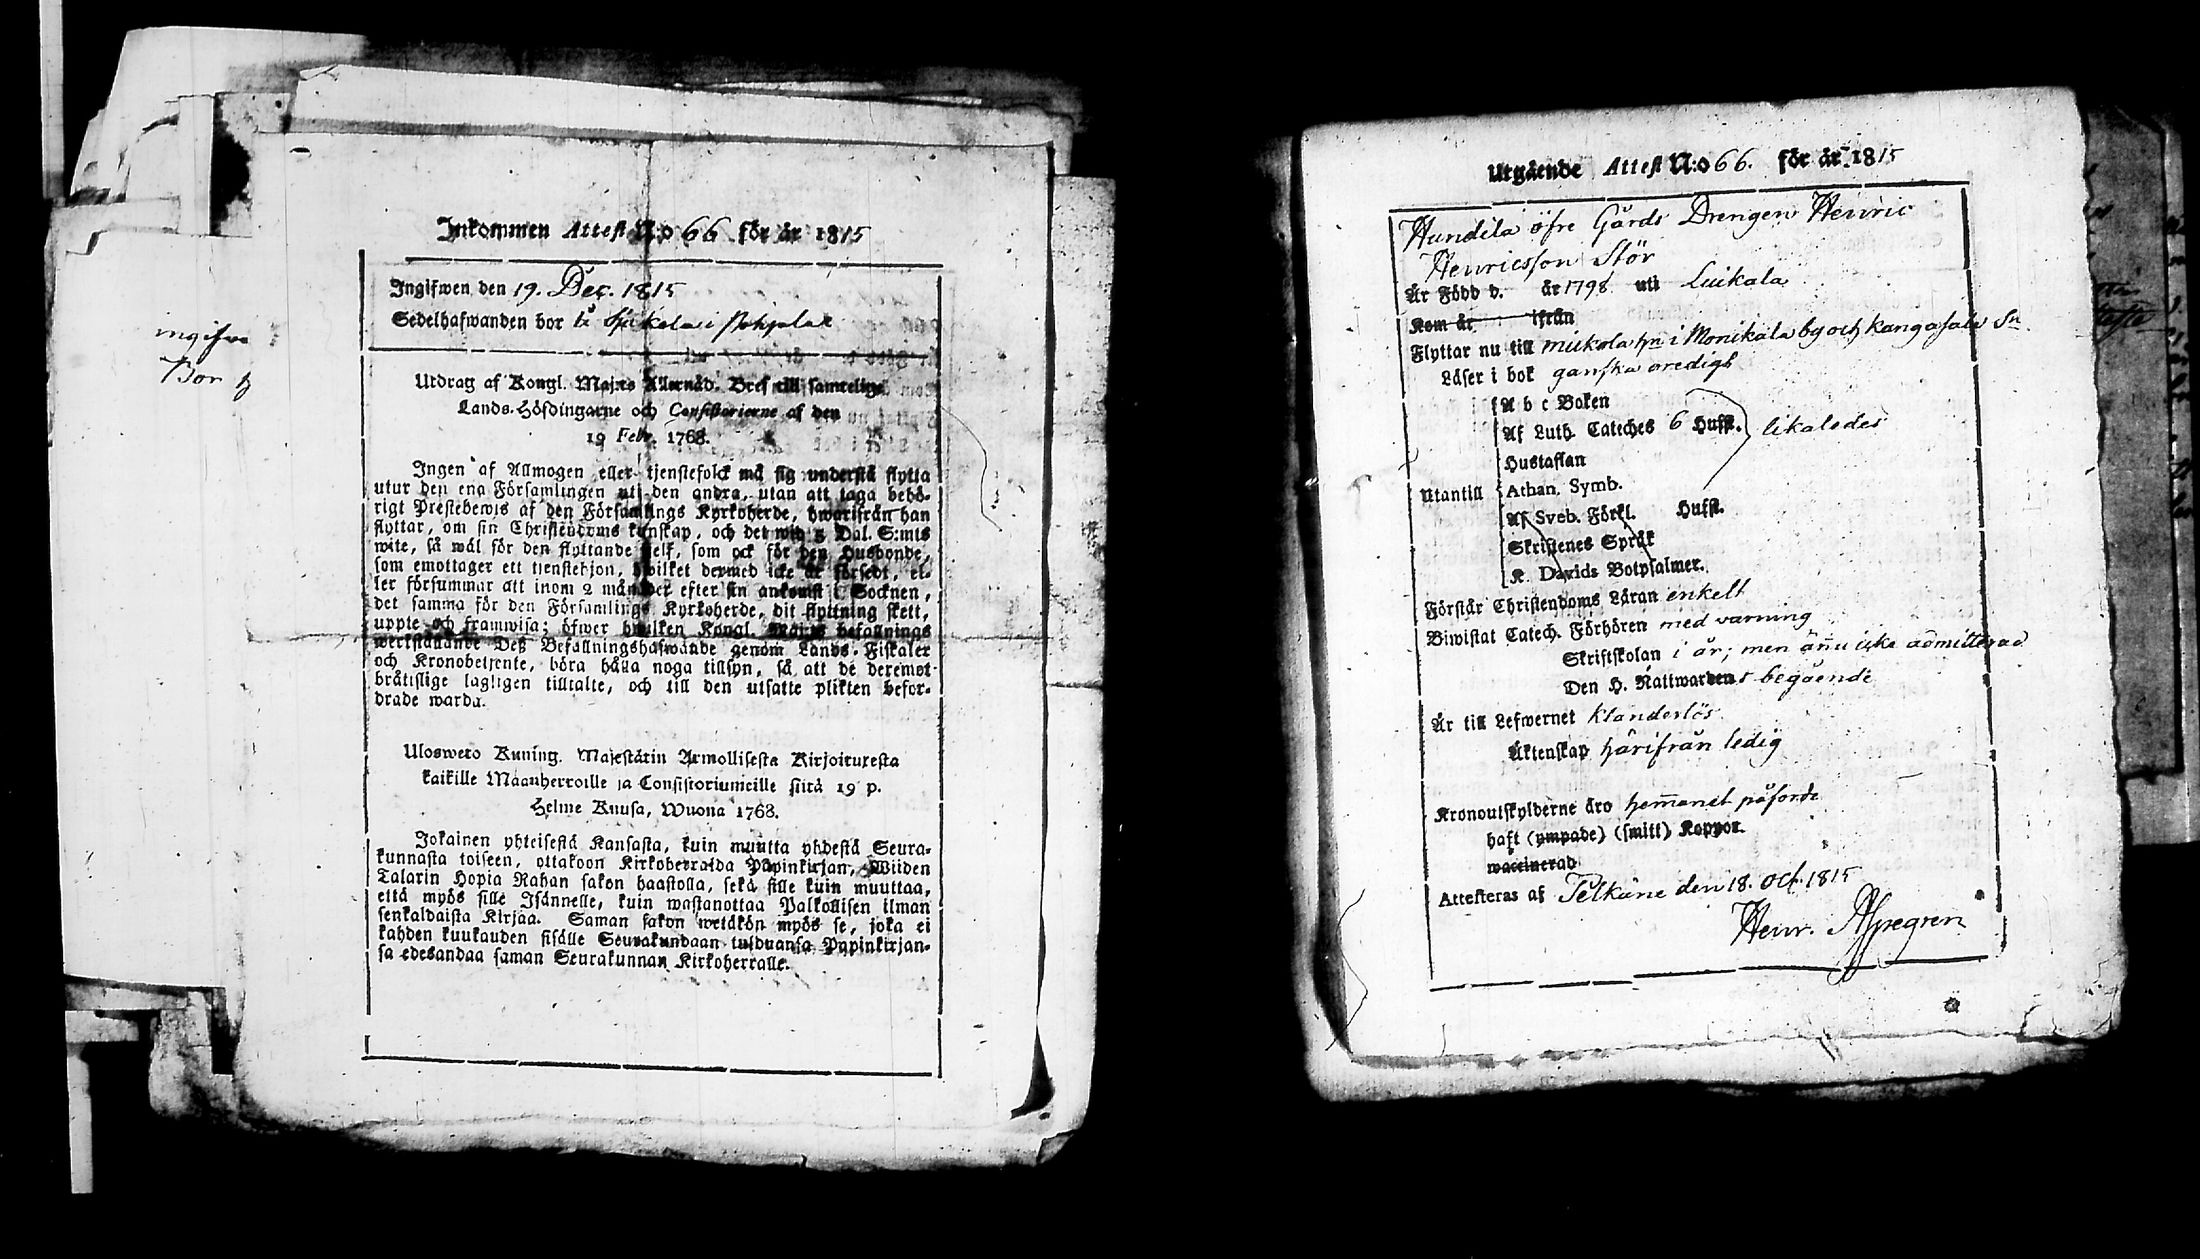 ingifwe
Bor
Inkommen Attest N:o 66 för år 1815
Ingifwen den 19. Dec. 1815
Sedelhafwanden bor i Pohjala
Utdrag af Kongl. Maj:ts Allernåd. Bref till samtelige
Lands-Höfdingarne och Consistorierne af den
19 Febr. 1768.
Ingen af Allmogen eller tjenstefolck må sig understå flytta
utur den ena Församlingen uti den andra, utan att taga behö-
rigt Prestebewis af den Församlings Kyrkoherde, hwarifrån han
flyttar, om sin Christendoms kunskap, och det wid 5 Dal. S:mts
wite, så wäl för den flyttande self, som ock för den Husbonde,
som emottager ett tjenstehjon, hwilket dermed icke är försedt, el-
ler försummar att inom 2 månader efter sin ankomst i Socknen,
det samma för den Församlings Kyrkoherde, dit flyttning skett,
uppte och framwisa; öfwer hwilken Kongl. Maj:ts befallnings
werkställande Deß Befallningshafwande genom Lands-Fiskaler
och Kronobetjente, böra hålla noga tillsyn, så att de deremot
bråtislige lagligen tilltalte, och till den utsatte plikten befor-
drade warda.
Uloswero Kuning. Majestätin Armollisesta Kirjoituxesta
kaikille Maanherroille ja Consistoriumeille siitä 19 p.
Helme Kuusa, Wuona 1768.
Jokainen yhteisestä Kansasta, kuin muutta yhdestä Seura-
kunnasta toiseen, ottakoon Kirkoherralda Papinkirjan, Wiiden
Talarin Hopia Rahan sakon haastolla, sekä sille kuin muuttaa,
että myös sille Isännelle, kuin wastanottaa Palkollisen ilman
senkaldaista Kirjaa. Saman sakon wetäkön myös se, joka ei
kahden kuukauden sisälle Seurakundaan tulduansa Papinkirjan-
sa edesandaa saman Seurakunnan Kirkoherralle.
Utgående Attest N:o 66. för år 1815
Hundila öfre Gårds Drengen Henric
Henricsson Stör
Är Född d. år 1798 uti Luikala
Kom år ifrån
Flyttar nu till mukola hn i Monikala by och Kangasala Sn
Läser i bok ganska oredigt
A b c Boken
Af Luth. Cateches 6 Hufst. likaledes
Hustaflan
Utantill Athan. Symb.
Af Sveb. Förkl. Hufst.
Skriftenes Språk
K. Davids Botpsalmer.
Förstår Christendoms Läran enkelt
Biwistat Catech. Förhören med varning
Skriftskolan i år; men ännu icke admitterad
Den H. Nattwardens begående
Är till Lefwernet klanderlös
Äktenskap härifrån ledig
Kronoutskylderne äro hemmanet påförde
haft (ympade) (smitt) Koppor.
waccinerad
Attesteras af Pelkäne den 18. Oct. 1815
Henr. Aspegren